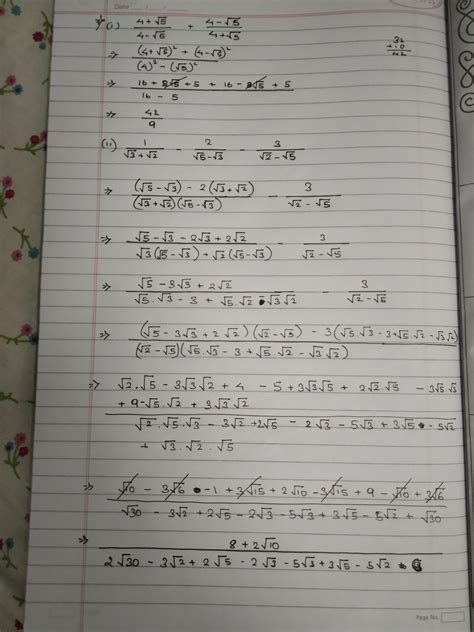 Date
(i) (4+√5)/(4-√5) + (4-√5)/(4+√5)
32
+10
42
⇒ ((4+√5)² + (4-√5)²)/((4)² - (√5)²)
⇒ (16 + 8√5 + 5 + 16 - 8√5 + 5)/(16 - 5)
⇒ 42/9
(ii) 1/(√3+√2) - 2/(√5-√3) - 3/(√2-√5)
⇒ ((√5-√3) - 2(√3+√2))/((√3+√2)(√5-√3)) - 3/(√2-√5)
⇒ (√5-√3-2√3+2√2)/(√3(√5-√3)+√2(√5-√3)) - 3/(√2-√5)
⇒ (√5-3√3+2√2)/(√5.√3-3+√5.√2-√3√2) - 3/(√2-√5)
⇒ ((√5-3√3+2√2)(√2-√5) - 3(√5.√3-3+√5√2-√3√2))/((√2-√5)(√5.√3-3+√5.√2-√3√2))
⇒ √2.√5-3√3√2+4-5+3√3√5+2√2.√5-3√5√3
+9-√5.√2+3√3√2
√2.√5.√3-3√2+2√5-2√3-5√3+3√5-5√2
+√3.√2.√5
⇒ (√10-3√6-1+3√15+2√10-3√15+9-√10+3√6)/(√30-3√2+2√5-2√3-5√3+3√5-5√2+√30)
⇒ (8+2√10)/(2√30-3√2+2√5-2√3-5√3+3√5-5√2)
Page No.